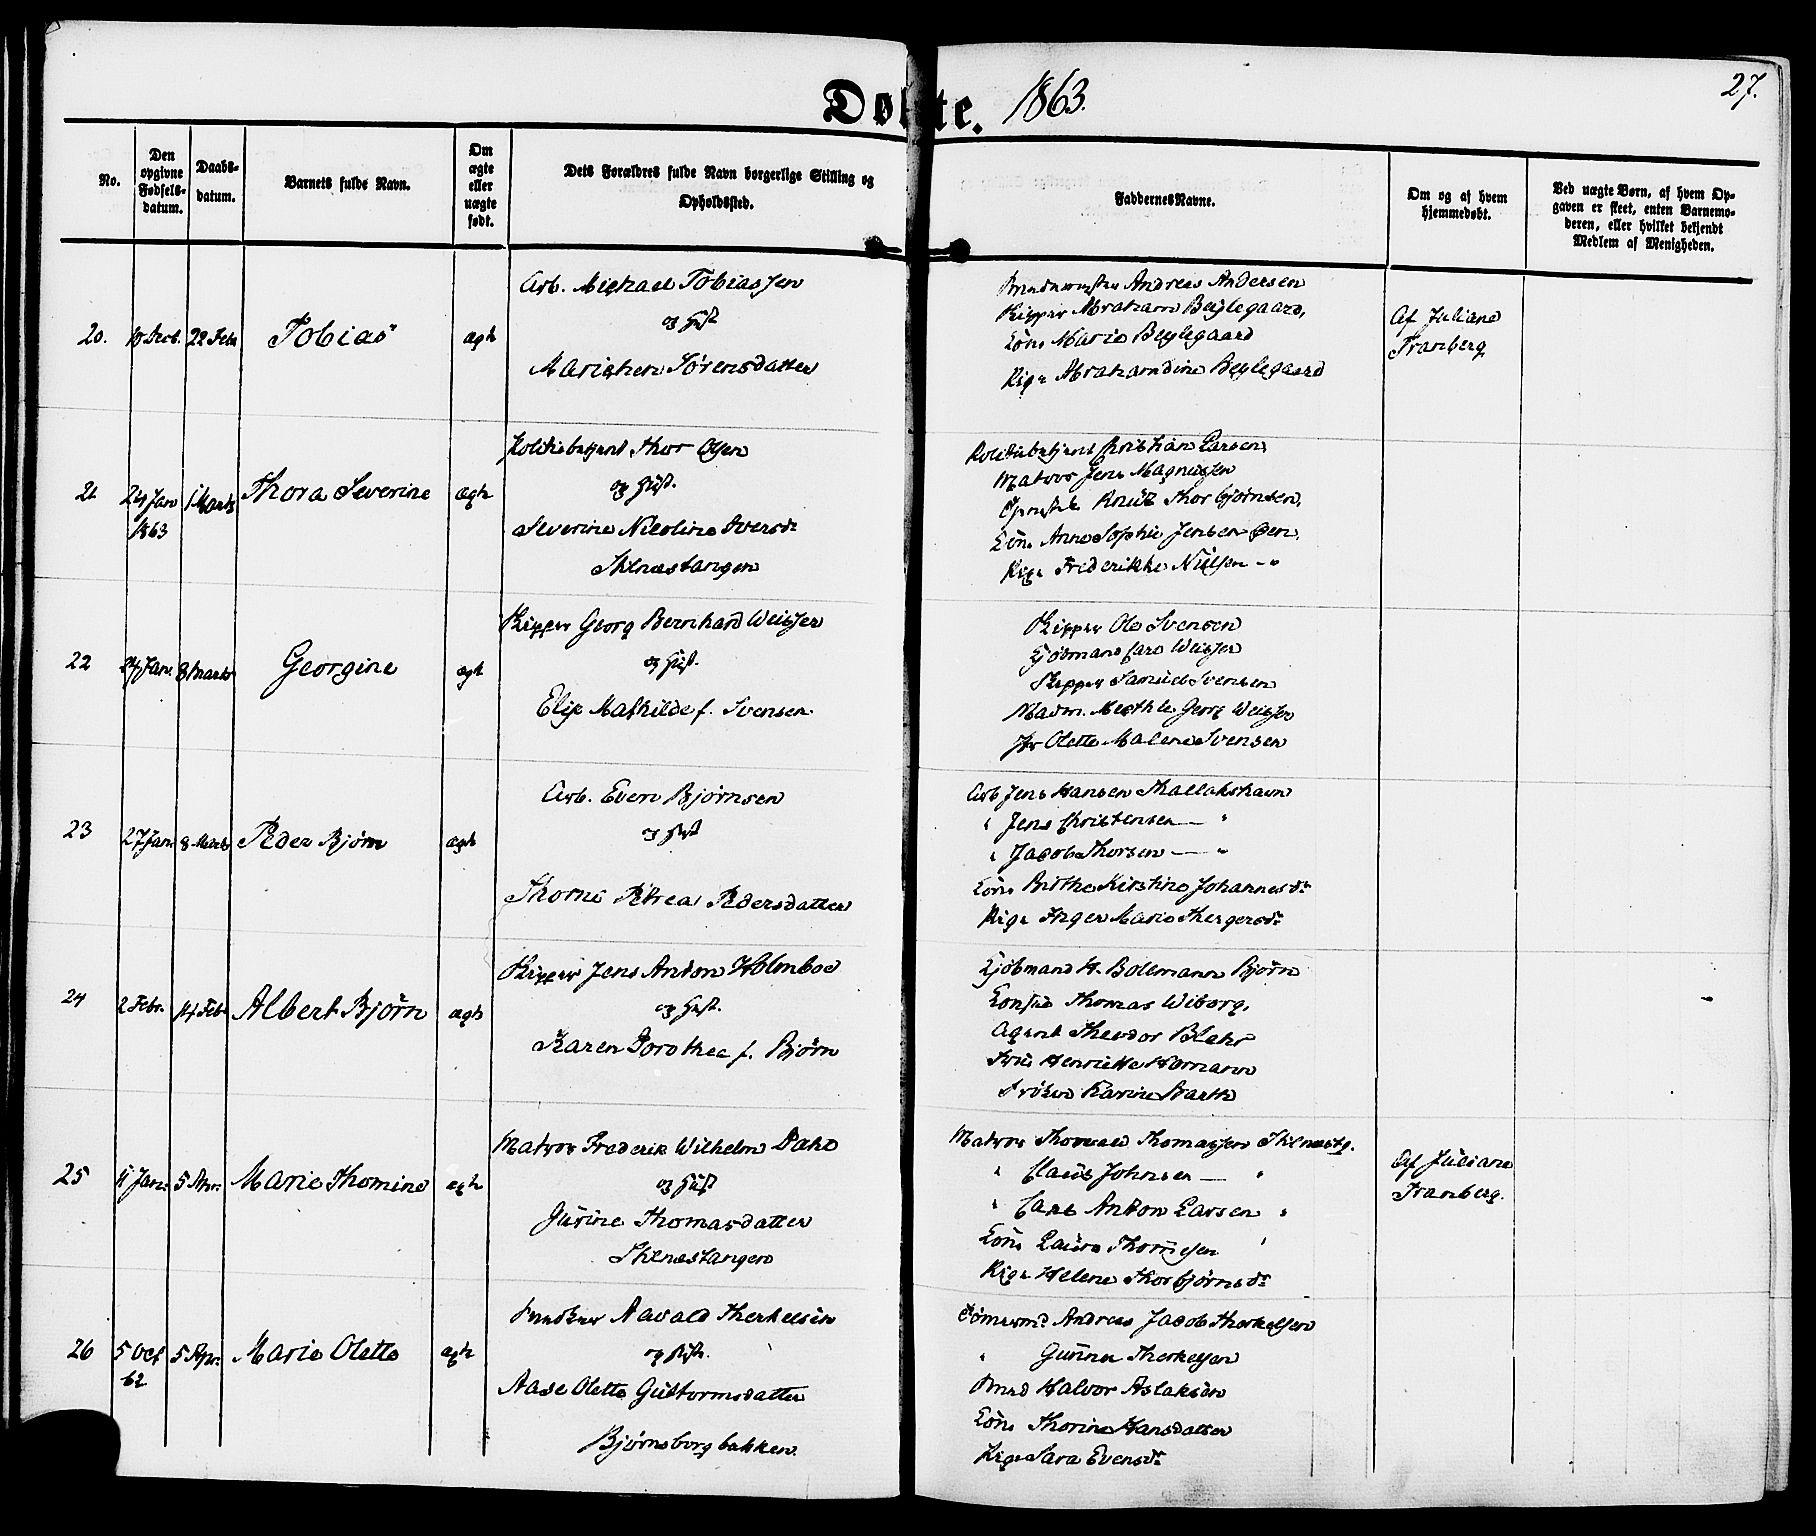 Døbte. 1863.
27.
No.
Den opgivne Fødsels-datum.
Daabs-datum.
Barnets fulde Navn.
Om ægte eller uægte født.
Dets Forældres fulde Navn borgerlige Stilling og Opholdssted.
Faddernes Navne.
Om og af hvem hjemmedøbt.
Ved uægte Børn, af hvem Op-
gaven er skeet, enten Barnemo-
deren, eller hvilket bekjendt
Medlem af Menigheden.
20. 22 Febr Tobias ægte
Arb. Michael Tobiassen
og Hust
Marichen Sørensdatter
Andreas Andersen
Skipper Abraham Beylegaard,
Kone Marie Beylegaard
Pige Abrahamdine Beylegaard
Af Juliane
Tranberg
21 24 Jan 1863 1 Marts Thora Severine ægte
Politibetjent Thor Olsen
og Hust.
Severine Nicoline Iversdr
Stenæstangen
Politibetjent Christian Larsen,
Matros Jens Magnussen
Knüt Thorbjørnsen,
Kone Anne Sophie Jensen
Pige Frederikke Nielsen - "
22 27 Jan. 8 Marts Georgine ægt
Skipper Georg Bernhard Weisser
og Hust.
Elise Mathilde f. Svensen
Skipper Ole Svensen
Kjøbmand Carl Weisser
Skipper Samuel Svensen
Madm. Georg Weisser
Jfr Olette Malene Svensen
23 27 Jan. 8 Marts Peder Bjørn ægte
Arb. Even Bjørnsen
og Hust
Thorne Petrea Pedersdatter
Arb Jens Hansen Thallakshavn
" Jens Christensen — "
" Jacob Thorsen — "
Kone Birthe Kirstine Johannesdr
Pige Inger Marie Thergersdr
24 2 Febr. 14 Febr Albert Bjørn ægte
Skipper Jens Anton Holmboe
og Hust.
Karen Dorothea f. Bjørn
Kjøbmand H. Bolemann Bjørn
Konsul Thomas Wiborg,
Agent Theodor Blehr
Frue Henriette Homann
Frøken Karine Barth
25 11 Jan. 5 Apr. Marie Thomine ægte
Matros Frederik Wilhelm Dahl
og Hust
Jürine Thomasdatter
Stenæstangen
Matros Thorvald Thomassen Stenæstg.
" Claus Johnsen — "
" Carl Anton Larsen "
Kone Laura "
Pige Helene Thorbjørnsdr
Af Juliane
Tranberg.
26 5 Oct 62 5 Apr. Marie Olette ægte
Snedker Aavald Therkelsen
og Hustr.
Aase Olette Guttormsdatter
Bjørnsborgbakken.
Tømermd Andreas Jacob Therkelsen
" Gunner Therkelsen
Smed Halvor Aslaksen
Kone Thorine Hansdatter
Pige Sara Evensdr